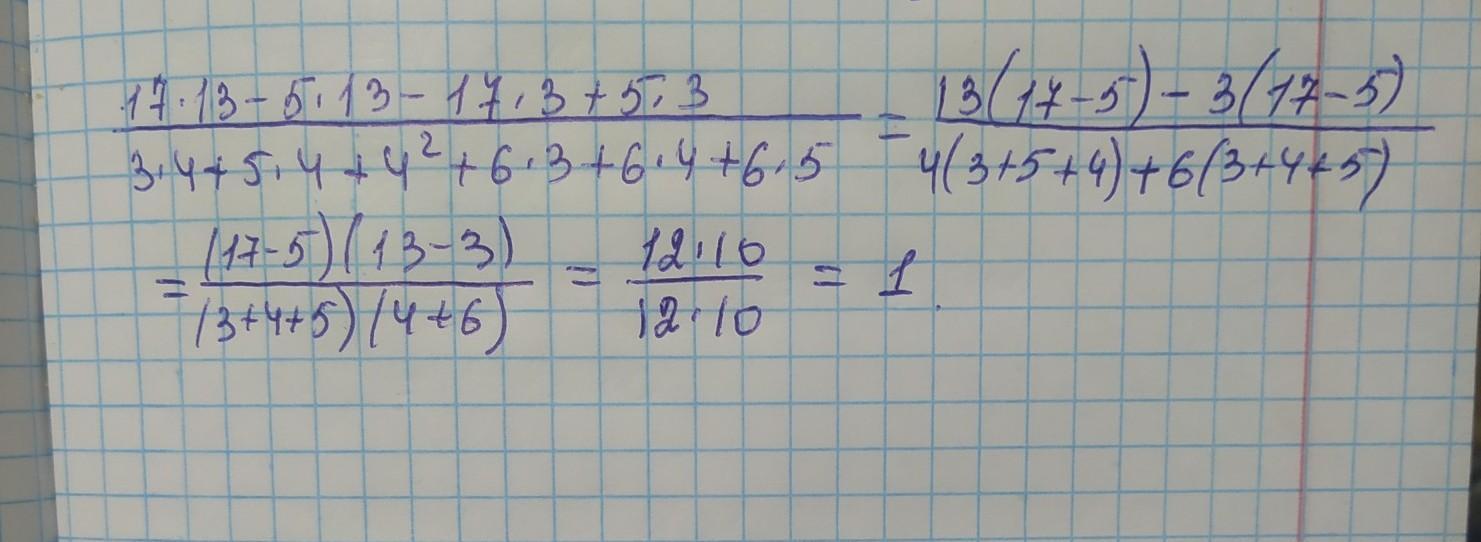 17·13-5·13-17·3+5·3 / 3·4+5·4+4²+6·3+6·4+6·5 = 13(17-5)-3(17-5) / 4(3+5+4)+6(3+4+5)
= (17-5)(13-3) / (3+4+5)(4+6) = 12·10 / 12·10 = 1.